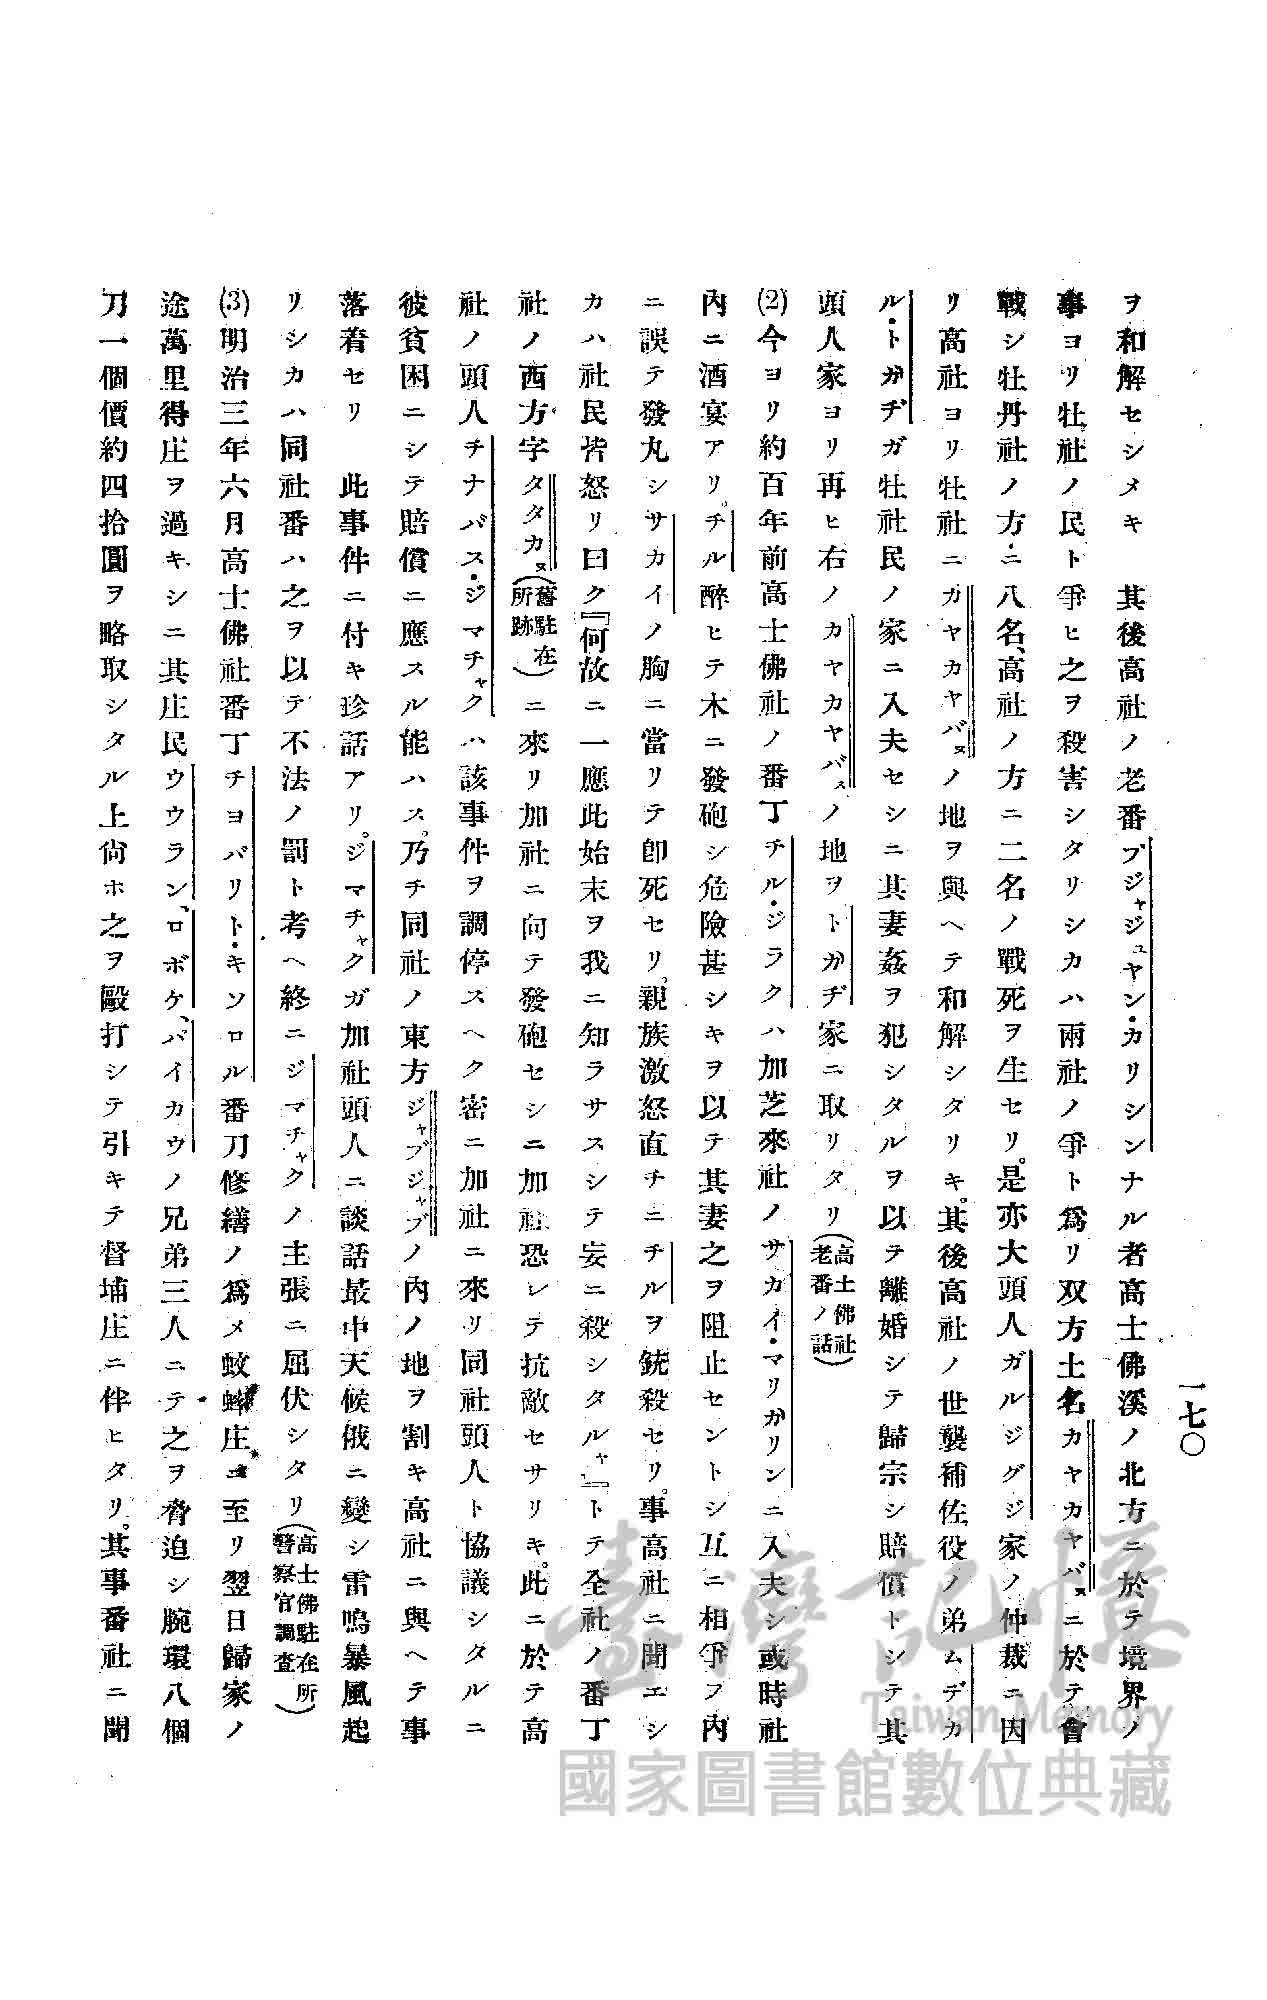 一七〇
ヲ和解セシメキ　其後高社ノ老番ブジャジュヤン・カリシンナル者高士佛溪ノ北方ニ於テ境界ノ
事ヨリ牡社ノ民ト爭ヒ之ヲ殺害シタリシカハ兩社ノ爭ト爲リ双方土名カヤカヤバヌニ於テ會
戰シ牡丹社ノ方ニ八名、高社ノ方ニ二名ノ戰死ヲ生セリ。是亦大頭人ガルジグジ家ノ仲裁ニ因
リ高社ヨリ牡社ニガヤカヤバヌノ地ヲ與ヘテ和解シタリキ。其後高社ノ世襲補佐役ノ弟ムデカ
ル・トガヂガ牡社民ノ家ニ入夫セシニ其妻姦ヲ犯シタルヲ以テ離婚シテ歸宗シ賠償トシテ其
頭人家ヨリ再ヒ右ノカヤカヤバヌノ地ヲトガヂ家ニ取リタリ(高士佛社老番ノ話)
(2)今ヨリ約百年前高士佛社ノ番丁チル・ジラクハ加芝來社ノサカイ・マリガリンニ入夫シ或時社
內ニ酒宴アリ。チル醉ヒテ木ニ發砲シ危險甚シキヲ以テ其妻之ヲ阻止セントシ互ニ相爭フ內
ニ誤テ發丸シサカイノ胸ニ當リテ卽死セリ。親族激怒直チニチルヲ銃殺セリ。事高社ニ聞エシ
カハ社民皆怒リ曰ク『何故ニ一應此始末ヲ我ニ知ラサスシテ妄ニ殺シタルャ』トテ全社ノ番丁
社ノ西方字タタカヌ(舊駐在所跡)ニ來リ加社ニ向テ發砲セシニ加社恐レテ抗敵セサリキ。此ニ於テ高
社ノ頭人チナバス・ジマチャクハ該事件ヲ調停スヘク密ニ加社ニ來リ同社頭人ト協議シタルニ
彼貧困ニシテ賠償ニ應スル能ハス。乃チ同社ノ東方ジャブジャブノ內ノ地ヲ割キ高社ニ與ヘテ事
落着セリ　此事件ニ付キ珍話アリ。ジマチャクガ加社頭人ニ談話最中天候俄ニ變シ雷鳴暴風起
リシカハ同社番ハ之ヲ以テ不法ノ罰ト考ヘ終ニジマチャクノ主張ニ屈伏シタリ(高士佛駐在所警察官調査)
(3)明治三年六月高士佛社番丁チヨバリト・キソロル番刀修繕ノ爲メ蚊蟀庄ニ至リ翌日歸家ノ
途萬里得庄ヲ過キシニ其庄民ウウラン、ロボケ、バイカウノ兄弟三人ニテ之ヲ脅迫シ腕環八個
刀一個價約四拾圓ヲ略取シタル上尙ホ之ヲ毆打シテ引キテ督埔庄ニ伴ヒタリ。其事番社ニ聞
臺灣記憶
Taiwan Memory
國家圖書館數位典藏